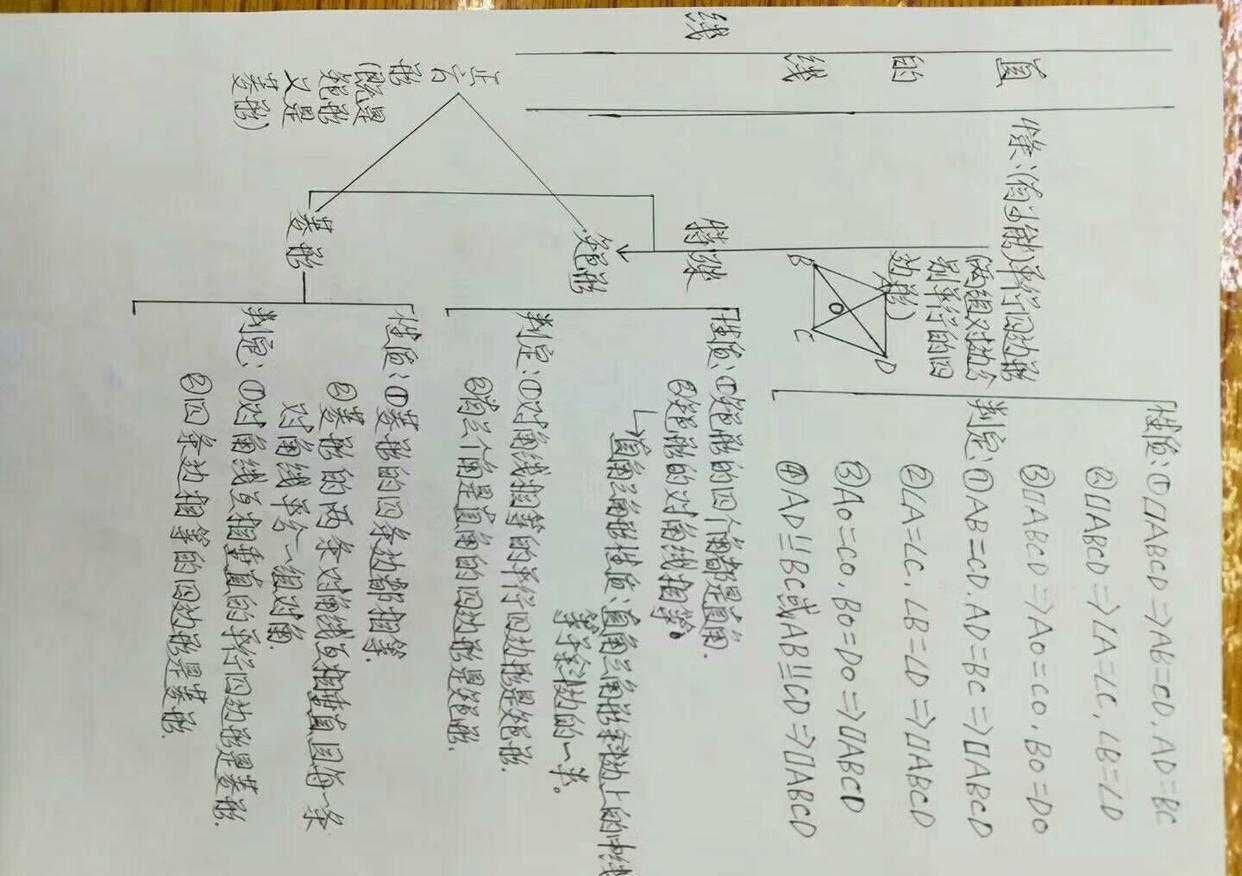 线
直 的 线
像：(有当前)平行四边形
(两组对边分
别平行的四
边形)
B A O C D
性质：①▱ABCD⇒AB=CD.AD=BC
②▱ABCD⇒∠A=∠C.∠B=∠D
③▱ABCD⇒AO=CO.BO=DO
判定：①AB=CD.AD=BC⇒▱ABCD
②∠A=∠C.∠B=∠D⇒▱ABCD
③AO=CO.BO=DO⇒▱ABCD
④AD≡BC或AB≡CD⇒▱ABCD
特殊
矩形
性质：①矩形的四个角都是直角.
②矩形的对角线相等.
↳直角三角形性质：直角三角形斜边上的中线
等于斜边的一半。
判定：①对角线相等的平行四边形是矩形.
②有三个角是直角的四边形是矩形.
正方
形
(既是
矩形
又是
菱形)
菱形
性质：①菱形的四条边都相等.
②菱形的两条对角线互相垂直且每一条
对角线平分一组对角.
判定：①对角线互相垂直的平行四边形是菱形.
②四条边相等的四边形是菱形.